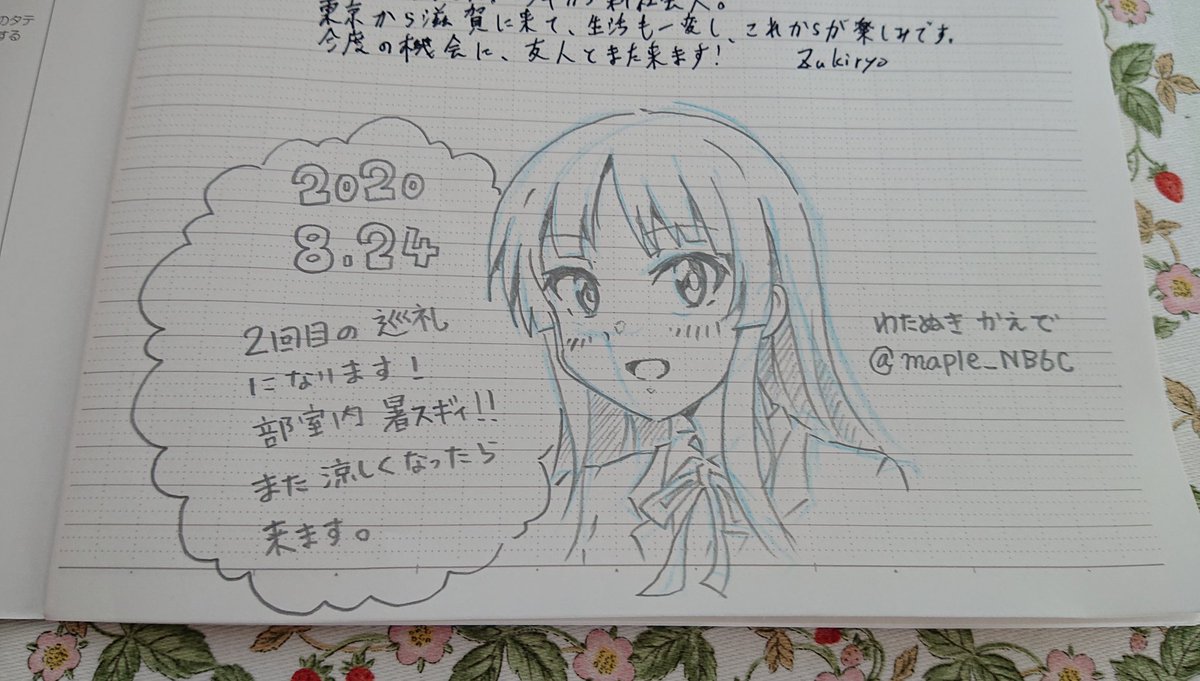 のタテ
する
新社会人。
東京から滋賀に来て、生活も一変し、これからが楽しみです。
今度の機会に、友人とまた来ます! Zukiryo
2020
8.24
2回目の巡礼
になります!
部室内 暑スギィ!!
また涼しくなったら
来ます。
わたぬき かえで
@maple_NB6C